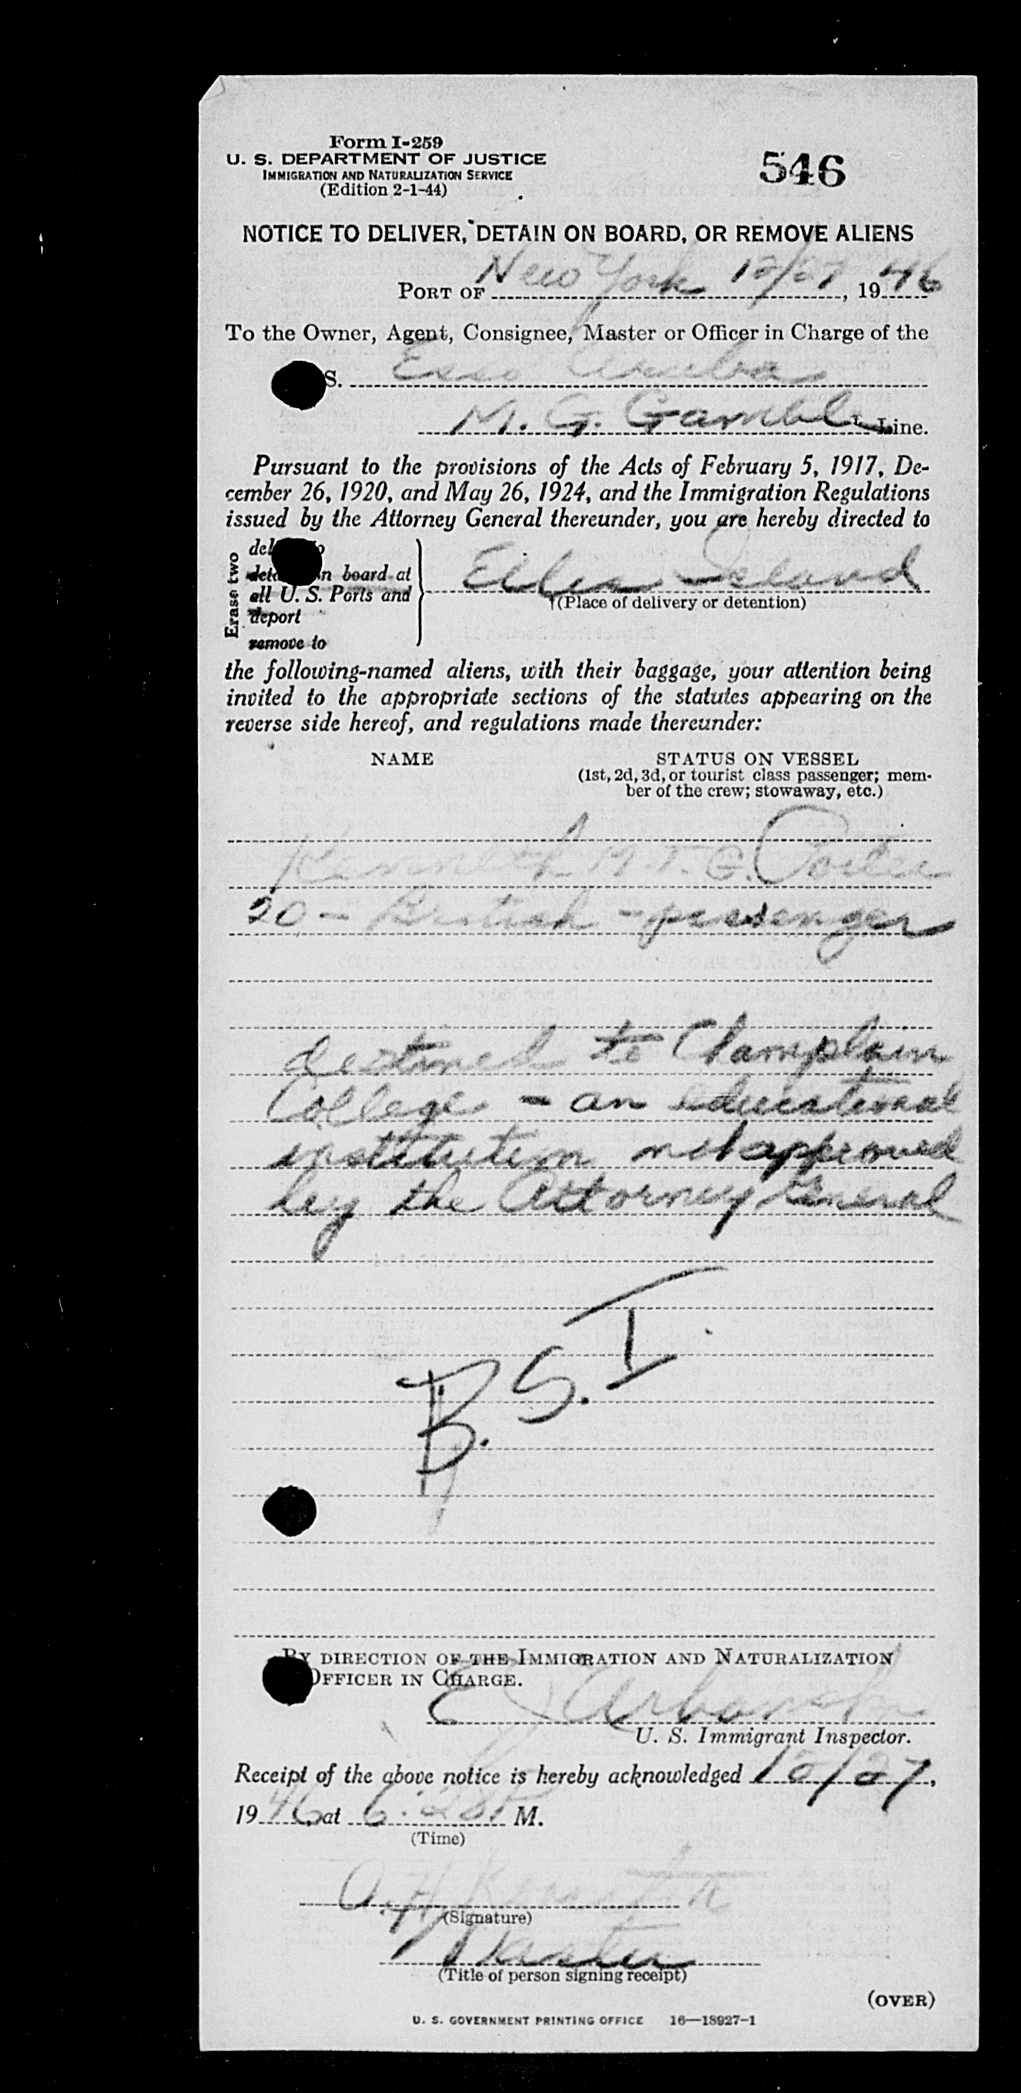 Form I-259
U. S. DEPARTMENT OF JUSTICE
IMMIGRATION AND NATURALIZATION SERVICE
(Edition 2-1-44)
546
NOTICE TO DELIVER, DETAIN ON BOARD, OR REMOVE ALIENS
PORT OF New York 12/27, 1946
To the Owner, Agent, Consignee, Master or Officer in Charge of the
S. Esso Aruba
M. G. Gamble Line.
Pursuant to the provisions of the Acts of February 5, 1917, De-
cember 26, 1920, and May 26, 1924, and the Immigration Regulations
issued by the Attorney General thereunder, you are hereby directed to
Erase two
on board at
all U. S. Ports and
deport
remove to
Ellis Island
(Place of delivery or detention)
the following-named aliens, with their baggage, your attention being
invited to the appropriate sections of the statutes appearing on the
reverse side hereof, and regulations made thereunder:
NAME STATUS ON VESSEL
(1st, 2d, 3d, or tourist class passenger; mem-
ber of the crew; stowaway, etc.)
Kenneth M. T. G. Porter
20 - British - passenger
destined to Champlain
College - an educational
institution not approved
by the Attorney General
B. S. I.
BY DIRECTION OF THE IMMIGRATION AND NATURALIZATION
OFFICER IN CHARGE.
E J
U. S. Immigrant Inspector.
Receipt of the above notice is hereby acknowledged 12/27,
1946, at 6:28 P M.
(Time)
A. H.
(Signature)
Master
(Title of person signing receipt)
(OVER)
U. S. GOVERNMENT PRINTING OFFICE 16—18927-1